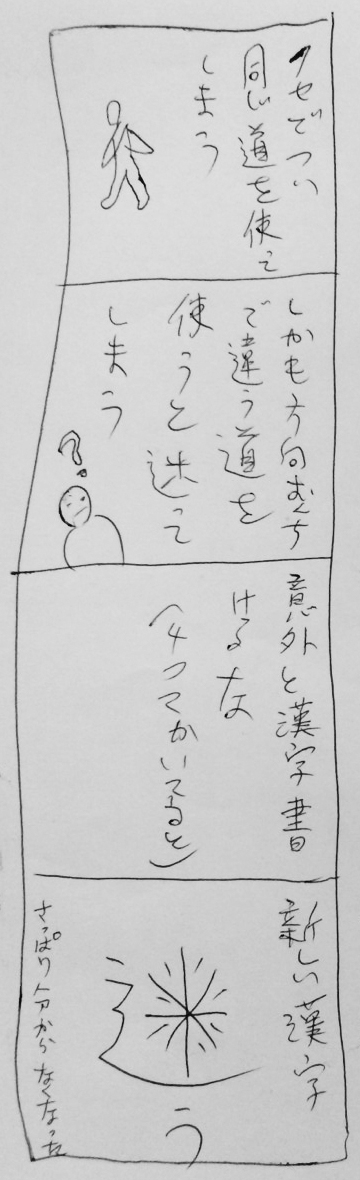 クセでつい
同じ道を使って
しまう
しかも方向おんち
で違う道を
使うと迷って
しまう
?
意外と漢字書
けるな
(4つつかいてると)
新しい漢字
う
さっぱり分からなくなった